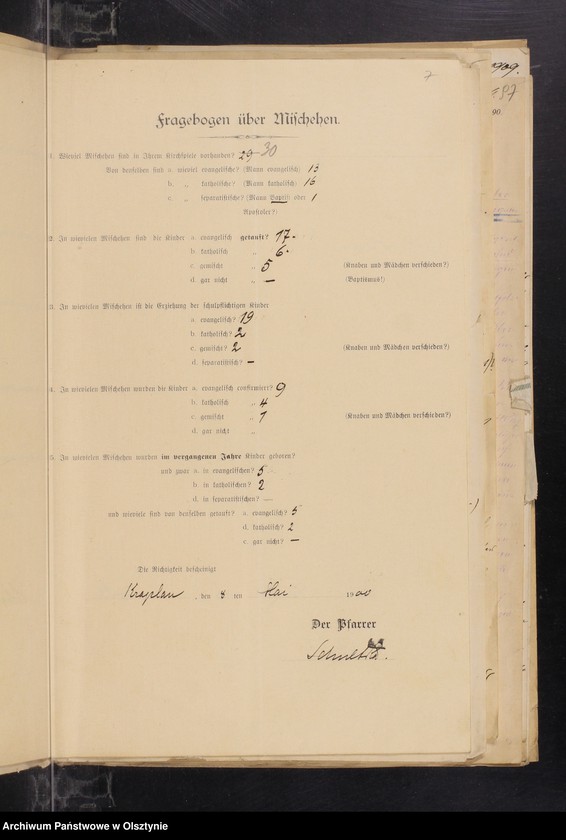 7
Fragebogen über Mischehen.
1. Wieviel Mischehen sind in Ihrem Kirchspiele vorhanden? 29 30
Von denselben sind a. wieviel evangelische? (Mann evangelisch) 13
b. „ katholische? (Mann katholisch) 16
c. „ separatistische? (Mann Baptist oder 1
Apostoler?)
2. In wievielen Mischehen sind die Kinder a. evangelisch getauft? 17.
b. katholisch „ 6.
c. gemischt „ 5 (Knaben und Mädchen verschieden?)
d. gar nicht „ — (Baptismus!)
3. In wievielen Mischehen ist die Erziehung der schulpflichtigen Kinder
a. evangelisch? 19
b. katholisch? 2
c. gemischt? 2 (Knaben und Mädchen verschieden?)
d. separatistisch? —
4. In wievielen Mischehen wurden die Kinder a. evangelisch confirmiert? 9
b. katholisch „ 4
c. gemischt „ 1 (Knaben und Mädchen verschieden?)
d. gar nicht „
5. In wievielen Mischehen wurden im vergangenen Jahre Kinder geboren?
und zwar a. in evangelischen? 5
b. in katholischen? 2
d. in separatistischen? —
und wieviele sind von denselben getauft? a. evangelisch? 5
d. katholisch? 2
c. gar nicht? —
Die Richtigkeit bescheinigt
Kraplau, den 8 ten Mai 1900
Der Pfarrer
Schultz.
1909.
87
90.
Archiwum Państwowe w Olsztynie